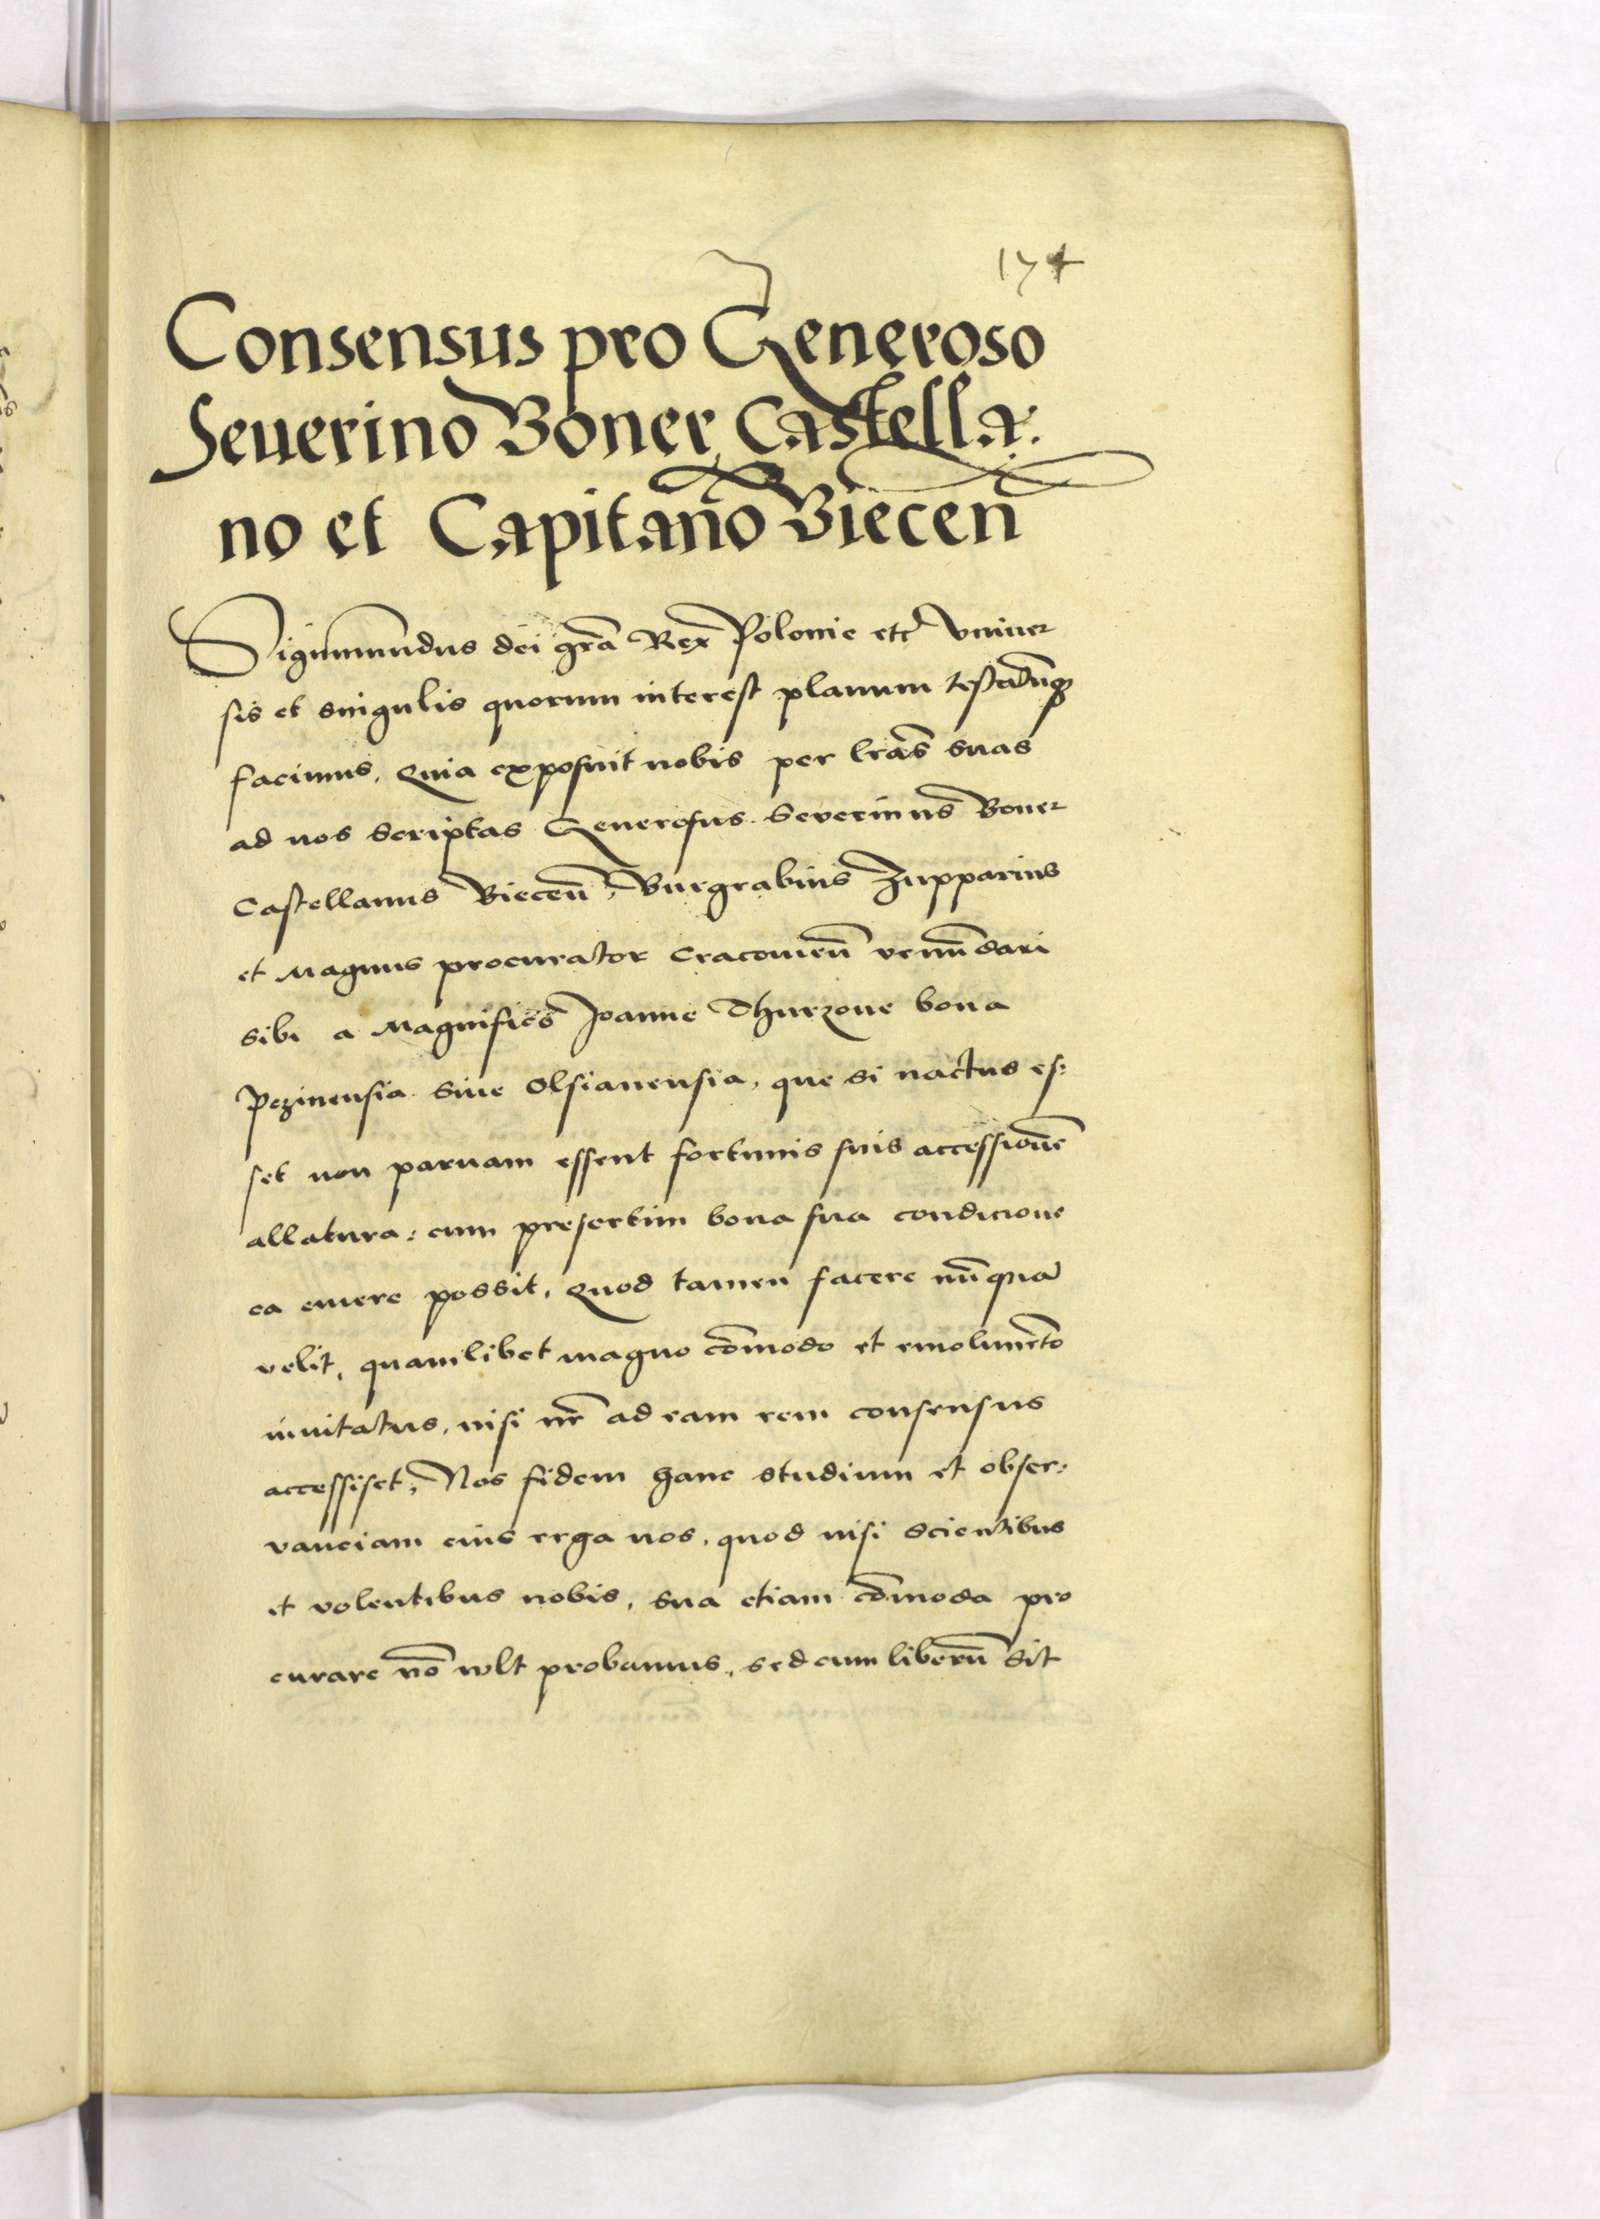 174
Consensus pro Generoso
Seuerino Boner Castella:
no et Capitan̄o Biecen̄
Sigismundus dei gr̄a Rex Polonie etc̄ Vniuer
sis et singulis quorum interest planum testatūqȝ
facimus, Quia exposuit nobis per lr̄as suas
ad nos scriptas Generosus Severinus Boner
Castellanus Biecen̄, Burgrabius Zupparius
et Magnus procurator Cracouien̄ venūdari
sibi a Magnifico Joanne Thurzone bona
Pezinensia siue Olsianensia, que si nactus es:
set non paruam essent fortunis suis accessionē
allatura: cum presertim bona sua condicione
ea emere possit, Quod tamen facere nūquā
velit, quamlibet magno cōmodo et emolumēto
inuitatus, nisi nr̄ ad eam rem consensus
accessiset, Nos fidem hanc studium et obser:
vanciam eius erga nos, quod nisi scientibus
et volentibus nobis, sua etiam cōmoda pro
curare nō wlt probamus, sed cum liberū sit